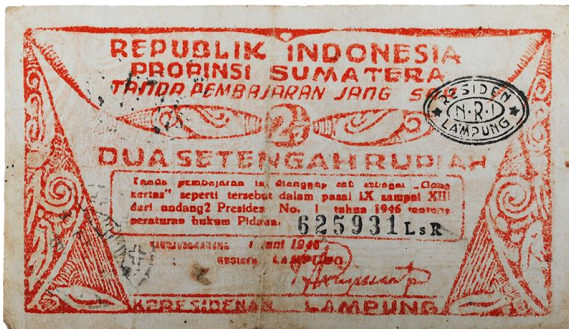 REPUBLIK INDONESIA
PROPINSI SUMATERA
TANDA PEMBAJARAN JANG
RESIDEN
N.R.I
LAMPUNG
2½
DUA SETENGAH RUPIAH
Tanda pembajaran ini dianggap sah sebagai „Oeang
kertas" seperti tersebut dalam pasal IX sampai XIII
dari undang2 Presiden No. 1 tahun 1946 tentang
peraturan hukum Pidana.
625931 LsR
1 1948
RESIDEN LAMPUNG
KERESIDENAN LAMPUNG